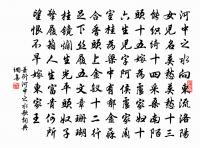 河中之水向東流洛陽
女兒名莫愁莫愁十三
能織綺十四採桑南陌
頭十五嫁為盧家婦十
六生兒字阿侯盧家蘭
室桂為梁中有鬱金蘇
合香頭上金釵十二行
足下絲履五文章珊瑚
挂鏡爛生光平頭奴子
擎履箱人生富貴何所
望恨不早嫁東家王
蕭衍河中之水歌詞典
網書